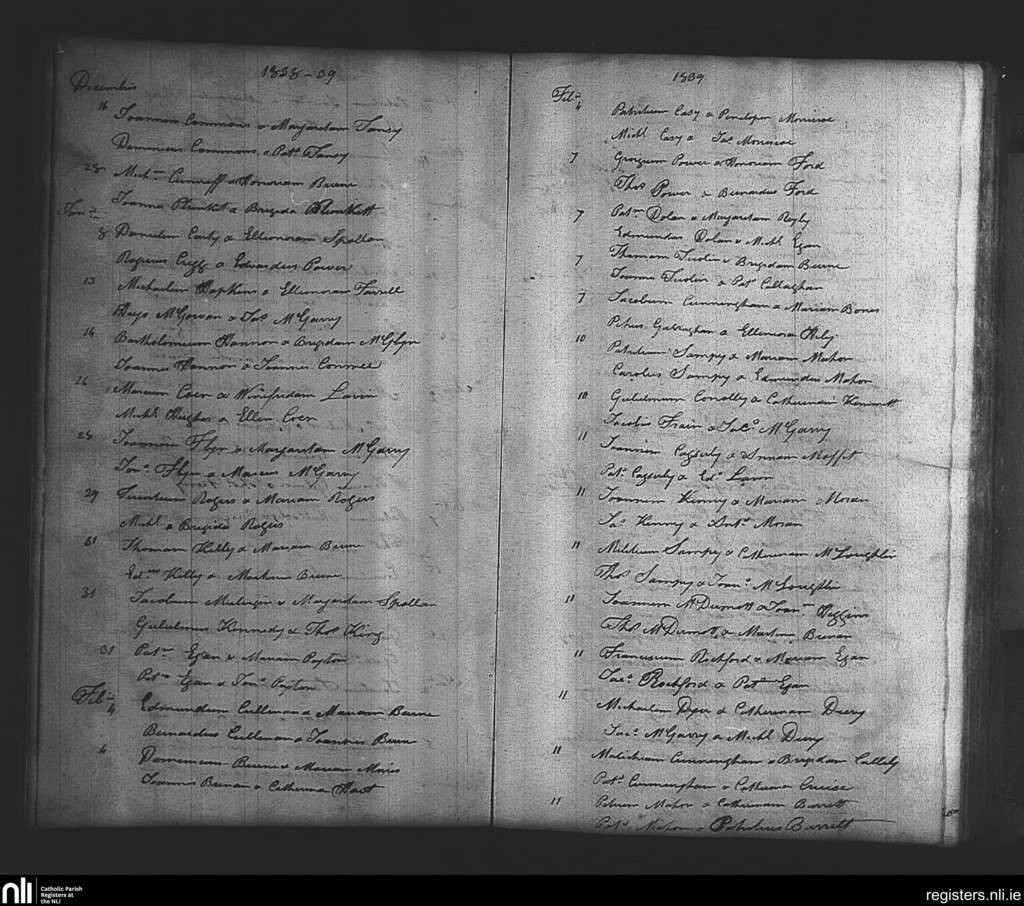 1838-39
Decembris
16 Joannem Commons & Margaretam Tansy
Demoncus Commons & Patt Tansy
28 Mich Cunniff & Honoriam Beirne
Joannes Plunket & Brigida Plunkett
Jan
8 Danielem Carty & Ellionoram Spollan
Rogerius & Edwardus Power
13 Michaelem Hopkins & Ellionoram Farrell
Hugo McGowan & Jas McGarry
14 Bartholomeum Hannon & Brigidam McGlyn
Joannes Hannon & Joannes Conmee
26 Marcum Coen & Winifridam Lavin
Michl Hughes & Ellen Coen
28 Joannem Flyn & Margaretam McGarry
Jons Flyn & Marcus McGarry
29 Terentium Rogers & Mariam Rogers
Michl & Brigida Rogers
31 Thomam Kelly & Mariam Beirne
Edus Kelly & Martinus Beirne
31 Jacobum & Margaretam Spollan
Gulielmus Kennedy & Thos King
31 Patm Egan & Mariam Peyton
Patts Egan & Jons Peyton
Feb
4 Edmundum Cullenan & Mariam Beirne
Bernardus Cullenan & Joannes Beirne
4 Demencum Beirne & Mariam
Joannes Brenan & Catherina Hart
1839
Feb
4 Patritium Casy & Penelope Morrisroe
Michl Casy & Jas Morrisroe
7 Georgium Power & Honoriam Ford
Thos Power & Bernardus Ford
7 Patm Dolan & Margaretam
Edmundus Dolan & Michl Egan
7 Thomam & Brigidam Beirne
Joannes & Patt Callaghan
7 Jacobum Cunningham & Mariam
Petrus & Ellenora
10 Patritium Sampy & Mariam Mahon
Carolus Sampy & Edmundus Mahon
10 Gulielmum Conolly & Catherinam
Jacobus Frain & Jacs McGarry
11 Joannem Casserly & Annam Moffit
Patt Casserly & Eds Lavin
11 Joannem Kenny & Mariam Moran
Jas Kenny & Ants Moran
11 Militium Sampy & Catherinam McLoughlin
Thos Sampy & Joans McLoughlin
11 Joannem McDermott & Joan Higgins
Thos McDermott & Martinus Brenan
11 Franciscum Rochford & Mariam Egan
Jacs Rochford & Patt Egan
11 Michaelem Dyer & Catherinam Deery
Jacs McGarry & Michl Deery
11 Malachiam Cunningham & Brigidam
Patt Cunningham & Catherina Cruise
11 Patrium Mahon & Catherinam Barrett
Patts Mahon & Patritius Barrett
nli
Catholic Parish
Registers at
the NLI
registers.nli.ie